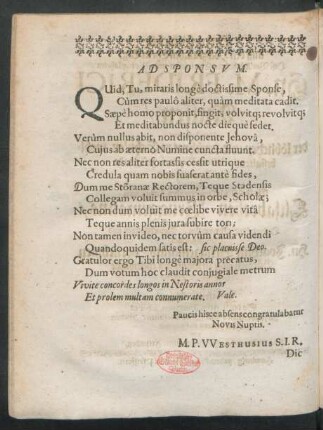 AD SPONSVM.
QUid, Tu, miraris longè doctissime Sponse,
Cùm res paulò aliter, quàm meditata cadit.
Sæpè homo proponit, fingit, volvitqꝫ revolvitqꝫ
Et meditabundus nocte dieque sedet.
Verùm nullus abit, non disponente Jehovâ,
Cujus ab æterno Numine cuncta fluunt.
Nec non res aliter fortassis cessit utrique
Credula quam nobis suaserat ante fides,
Dum me Störanæ Rectorem, Teque Stadensis
Collegam voluit summus in orbe, Scholæ;
Nec non dum voluit me cœlibe vivere vitâ
Teque annis plenis jura subire tori,
Non tamen invideo, nec torvùm causa videndi
Quandoquidem satis est: sic placuisse Deo.
Gratulor ergo Tibi longè majora precatus,
Dum votum hoc claudit conjugiale metrum
Vivite concordes longos in Nestoris annos
Et prolem multam connumerate. Vale.
Paucis hisce absens congratulabatur
Novis Nuptis.
M. P. VVESTHUSIUS S. I. R.
Dic